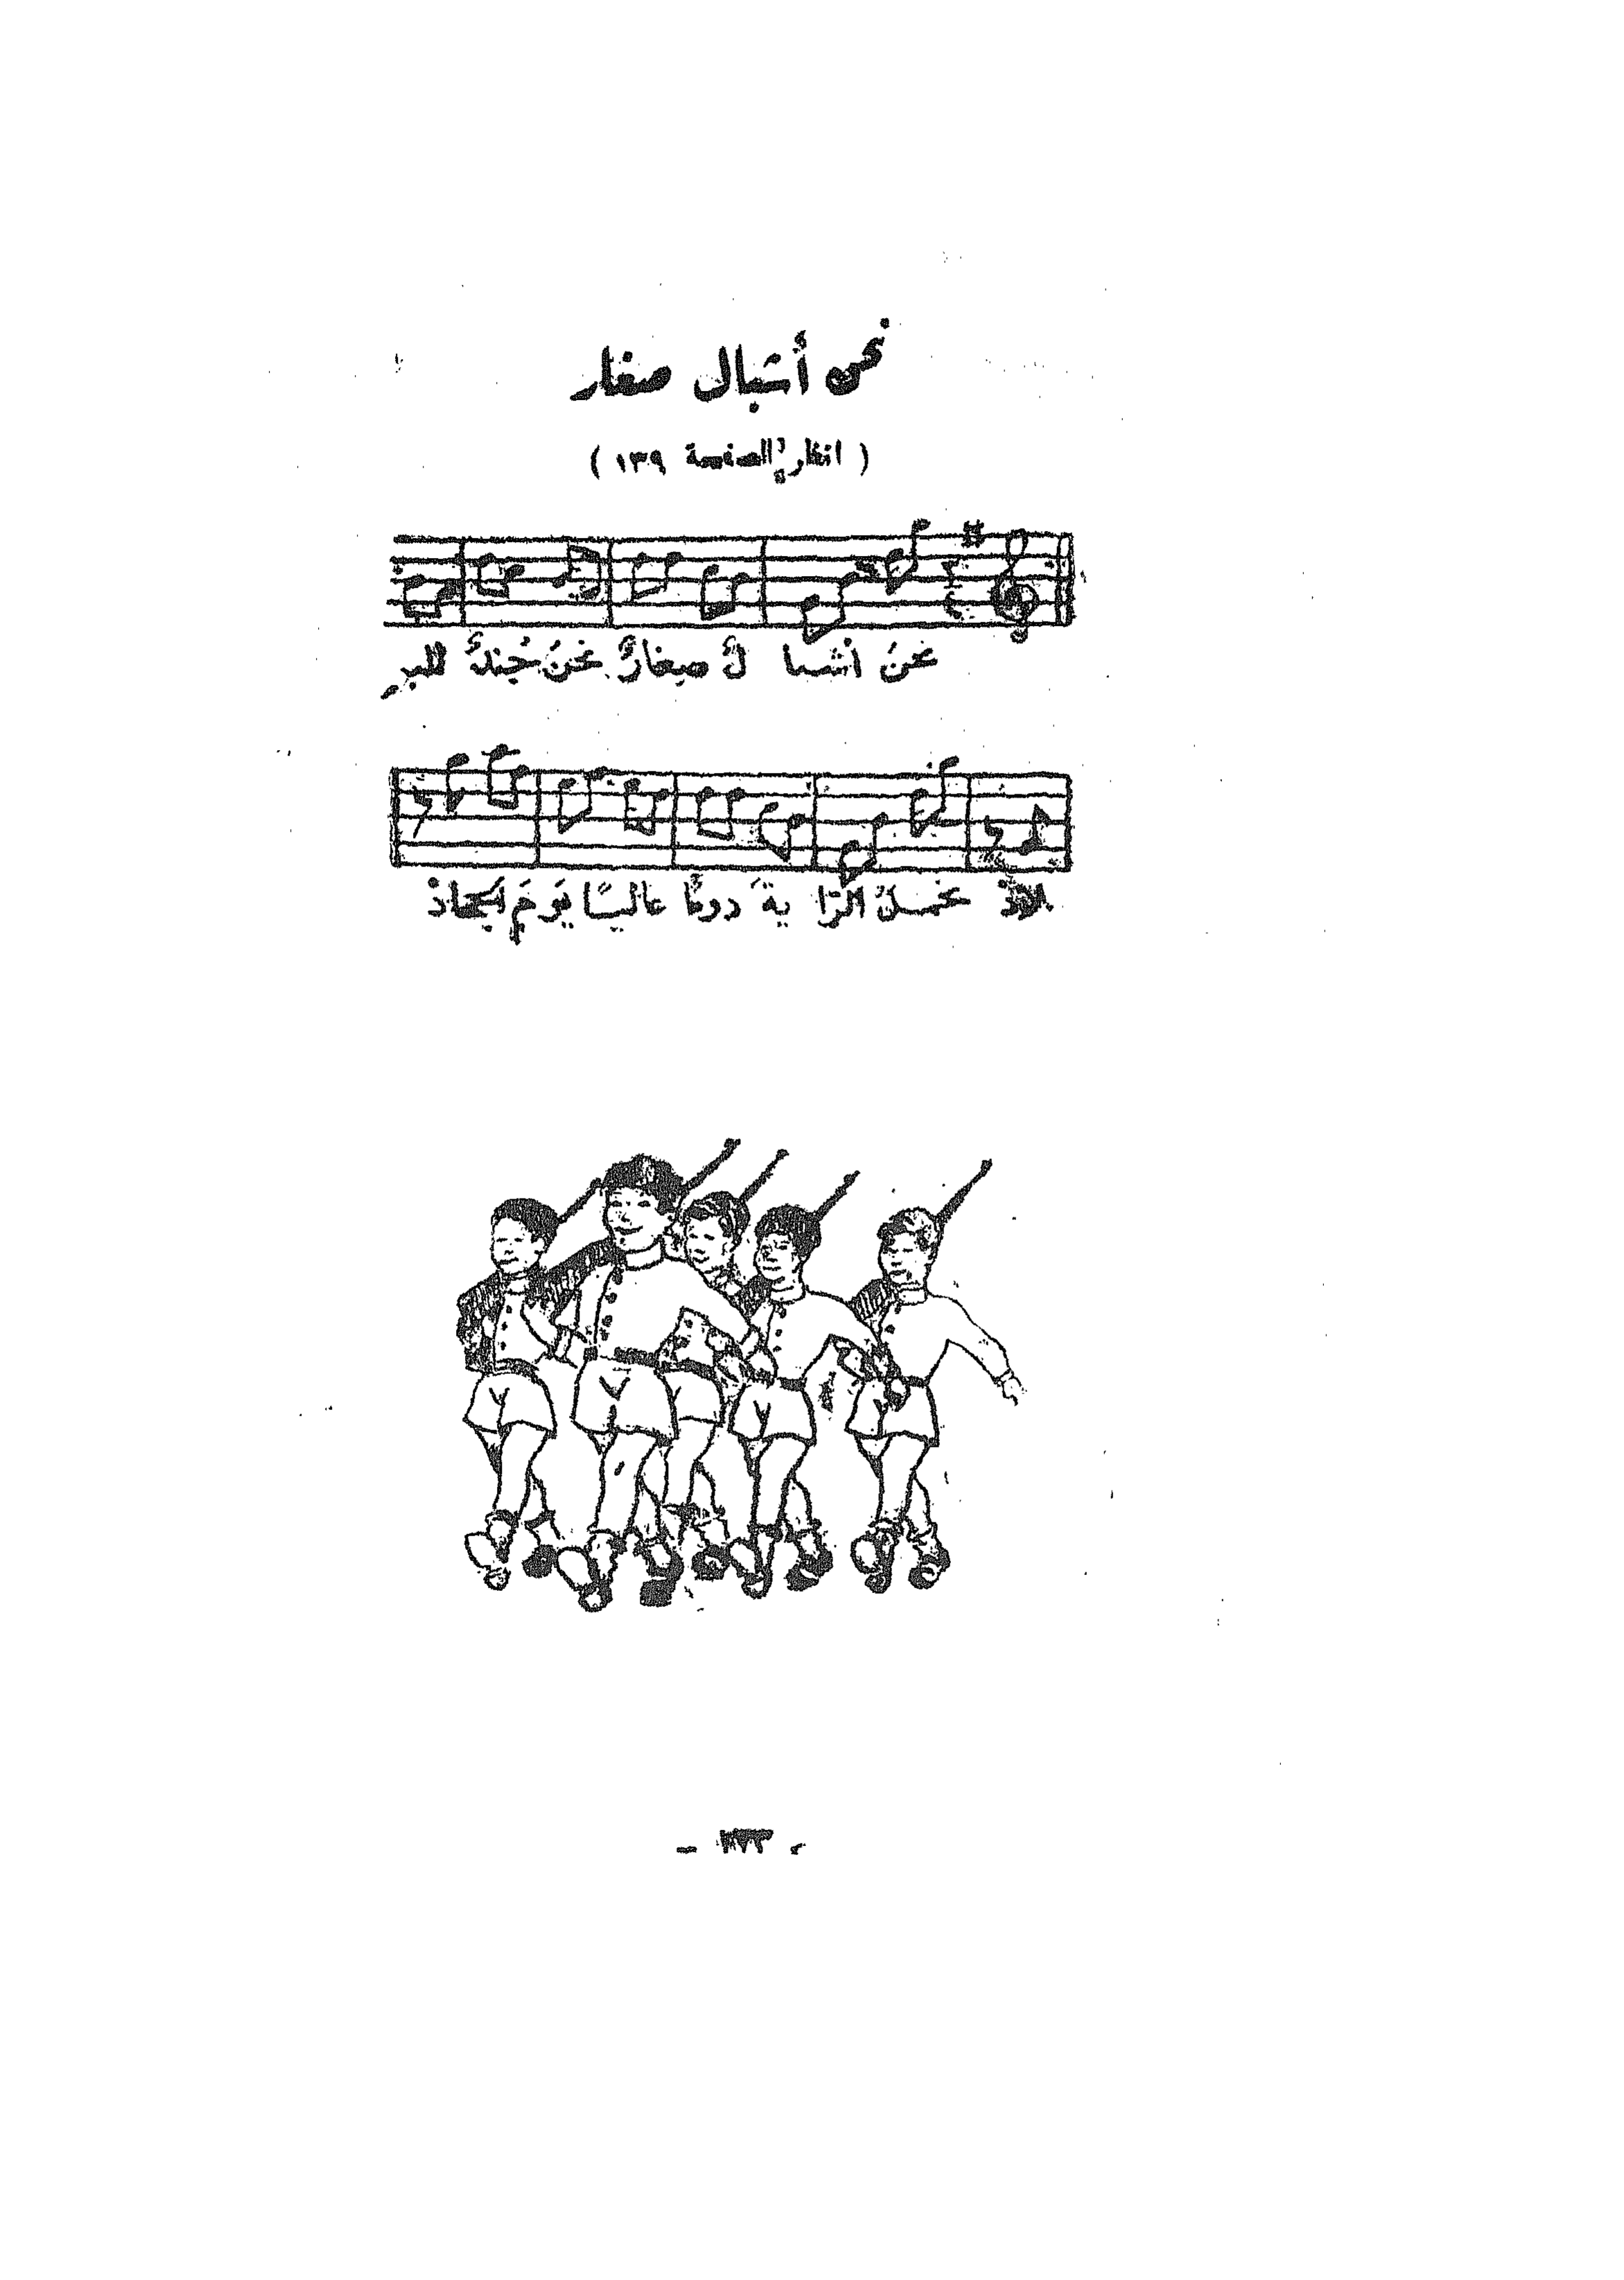 نحن أشبال صغار
( انظر الصفحة ١٣٩ )
نحنُ أشبا لٌ صغارٌ نحنُ جُندٌ للبِ
لادْ نحملُ الرّا يةَ دومًا عاليًا يَومَ الجهادْ